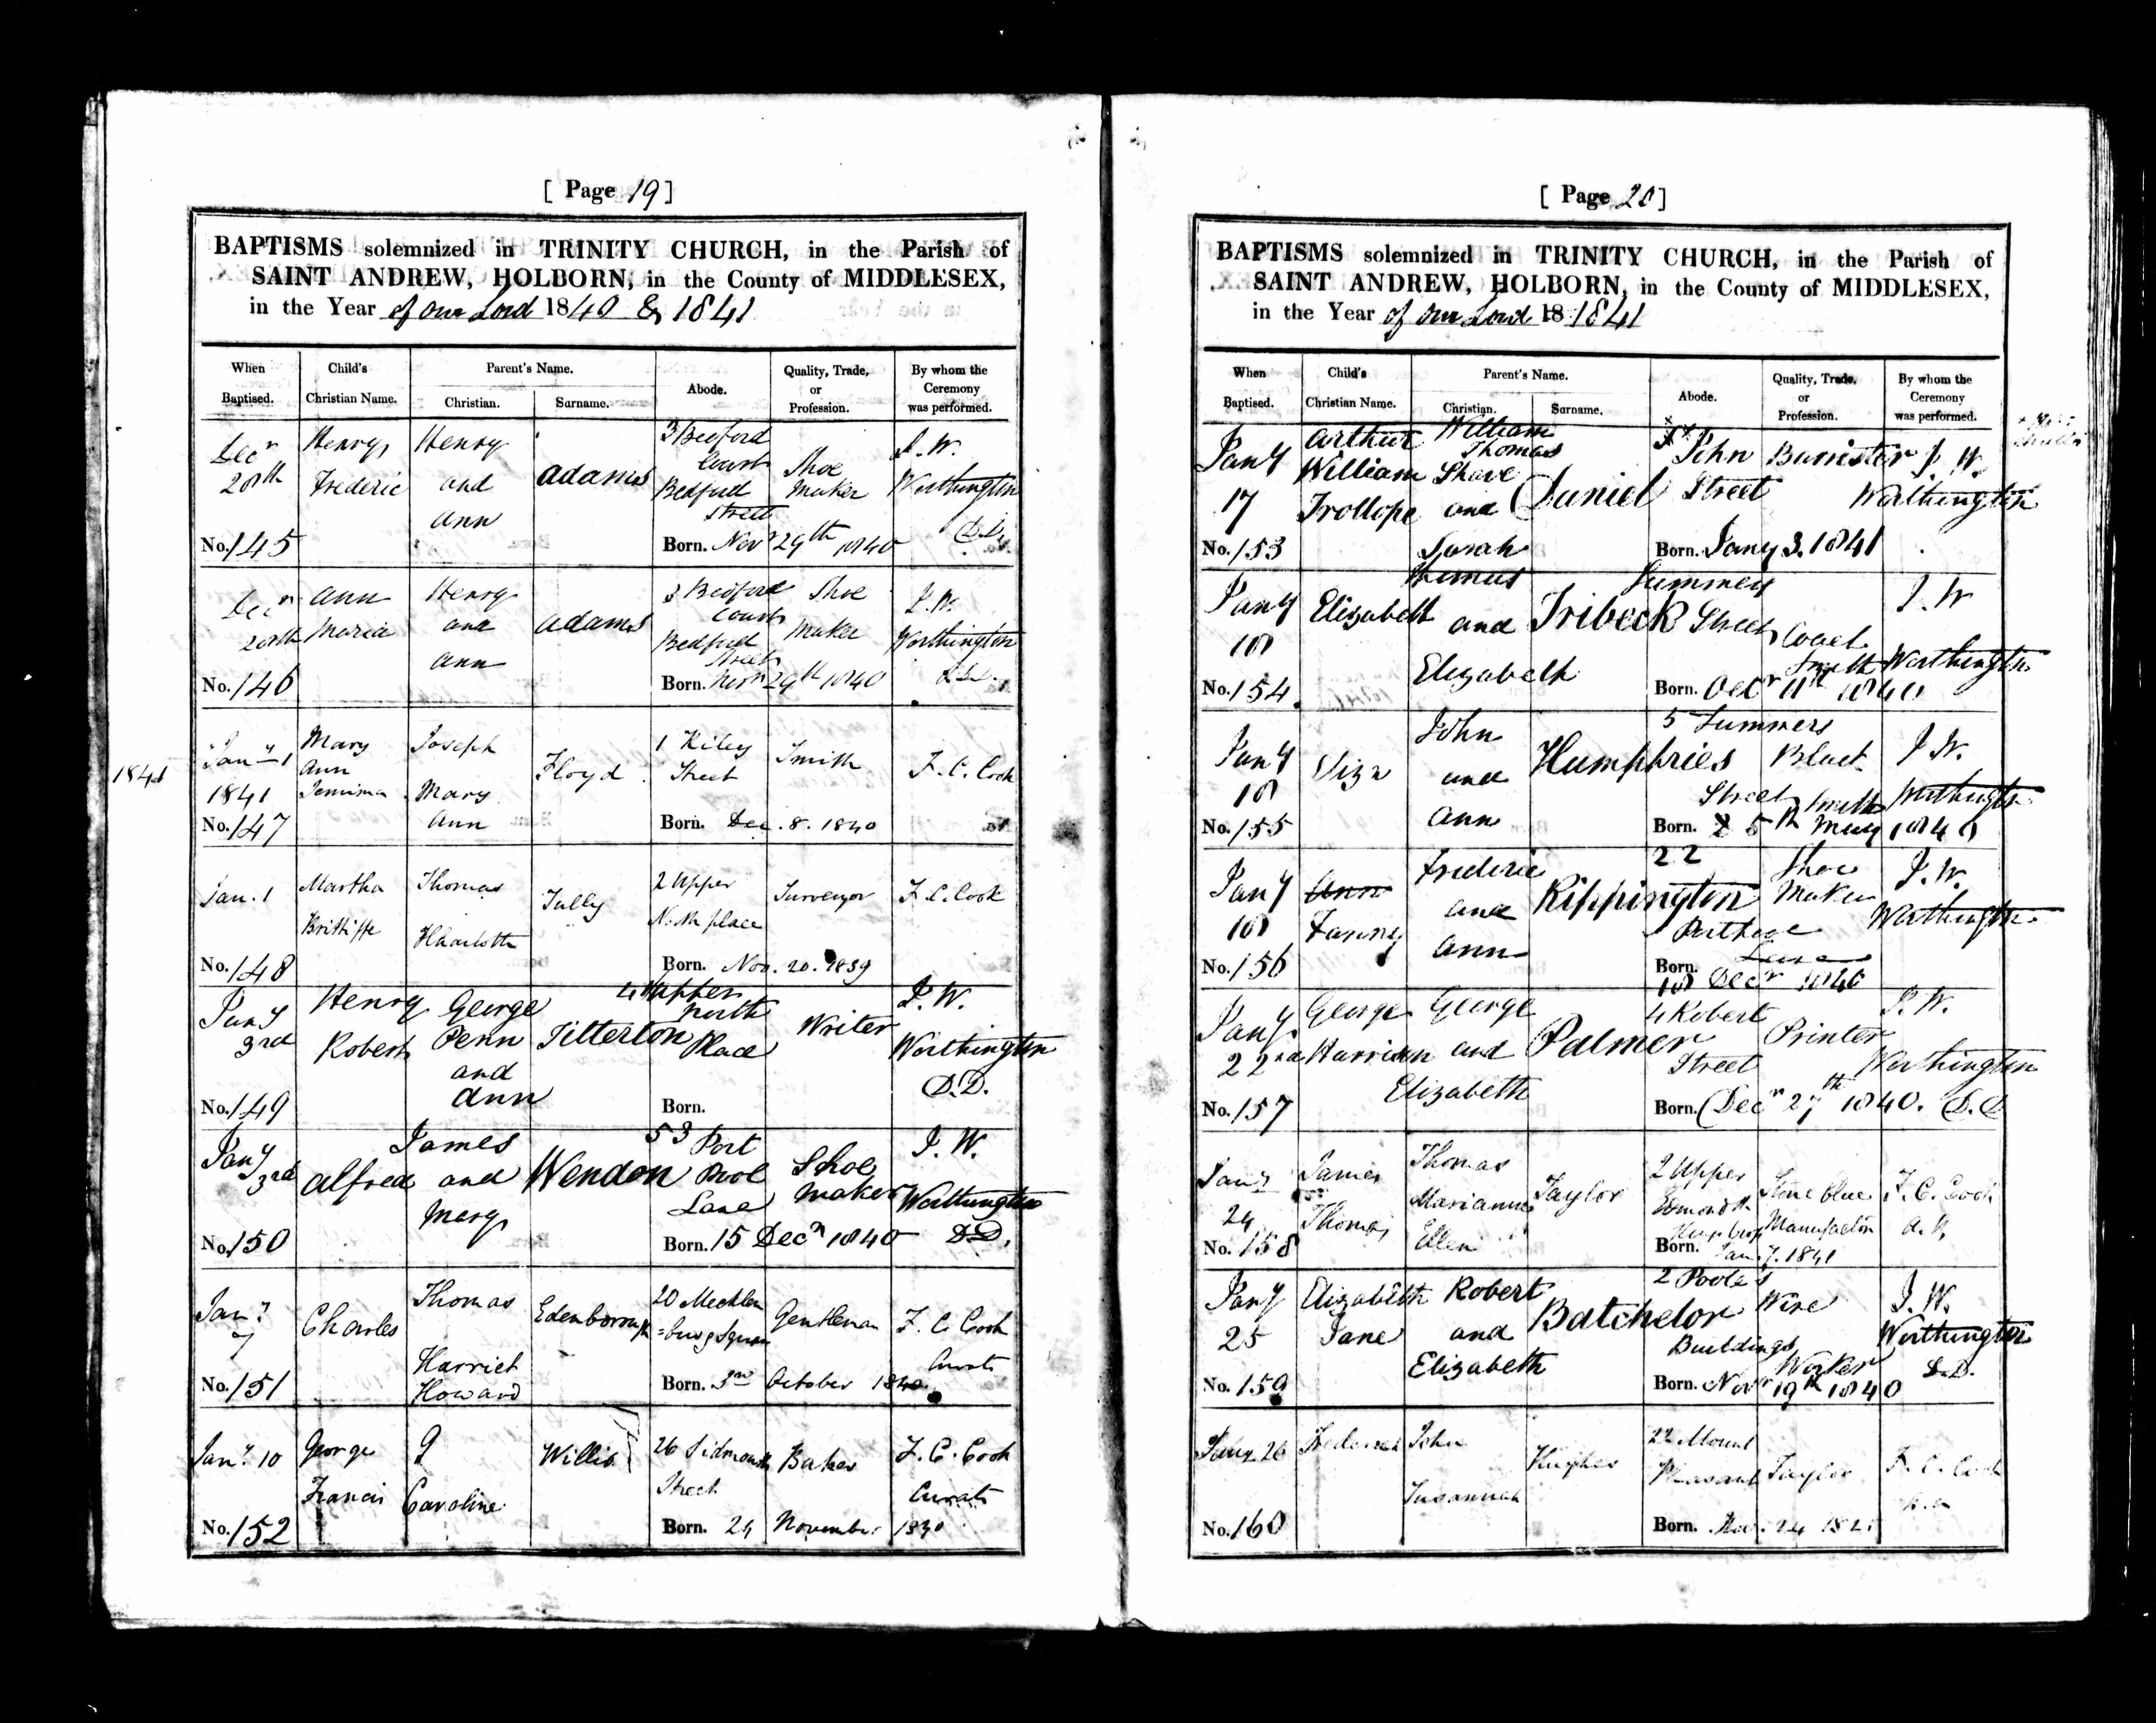 [ Page 19 ]
BAPTISMS solemnized in TRINITY CHURCH, in the Parish of
SAINT ANDREW, HOLBORN, in the County of MIDDLESEX,
in the Year of our Lord 1840 & 1841
When Baptised. Child's Christian Name. Parent's Name. Christian. Surname. Abode. Quality, Trade, or Profession. By whom the Ceremony was performed.
Decr 20th Henry Frederic Henry and Ann Adams 3 Bedford Court Bedford Street Shoe Maker J. W. Worthington D.D.
No. 145 Born. Novr 29th 1840
Decr 20th Ann Maria Henry and Ann Adams 3 Bedford Court Bedford Street Shoe Maker J. W. Worthington D.D.
No. 146 Born. Novr 29th 1840
1841
Jany 1 1841 Mary Ann Jemima Joseph Mary Ann Floyd 1 Street Smith F. C. Cook
No. 147 Born. Dec. 8. 1840
Jan. 1 Martha Brittiffe Thomas Charlotte Tully 2 Upper North place Surveyor F. C. Cook
No. 148 Born. Nov. 20. 1839
Jany 3rd Henry Robert George Penn and Ann Titterton Upper North Place Writer J. W. Worthington D.D.
No. 149 Born.
Jany 3rd Alfred James and Mary Wendon 53 Port Pool Lane Shoe Maker J. W. Worthington D.D.
No. 150 Born. 15 Decr 1840
Jany 7 Charles Thomas Harriet Howard Edenborough 20 Mecklen=burg Square Gentleman F. C. Cook Curate
No. 151 Born. October 1840
Jany 10 George Francis G Caroline Willis 26 Sidmouth Street Baker F. C. Cook Curate
No. 152 Born. 24 November 1840
[ Page 20 ]
BAPTISMS solemnized in TRINITY CHURCH, in the Parish of
SAINT ANDREW, HOLBORN, in the County of MIDDLESEX,
in the Year of our Lord 18 1841
When Baptised. Child's Christian Name. Parent's Name. Christian. Surname. Abode. Quality, Trade, or Profession. By whom the Ceremony was performed.
Jany 17 Arthur William Trollope William Thomas Shave and Sarah Daniel John Street Barrister J. W. Worthington
No. 153 Born. Jany 3. 1841
Jany 18 Elizabeth Thomas and Elizabeth Tribeck Summers Street Coach Smith J. W. Worthington
No. 154. Born. Decr 11th 1840
Jany 18 Eliza John and Ann Humphries 5 Summers Street Black Smith J. W. Worthington
No. 155 Born. 5th May 1840
Jany 18 Ann Fanny Frederic and Ann Rippington 22 Lane Shoe Maker J. W. Worthington
No. 156 Born. 18 Decr 1840
Jany 22nd George Harrison George and Elizabeth Palmer 4 Robert Street Printer J. W. Worthington D.D
No. 157 Born. Decr 27th 1840.
Jany 24 James Thomas Thomas Marianne Ellen Taylor 2 Upper Stone blue Manufactor F. C. Cook
No. 158 Born. Jan. 7. 1841
Jany 25 Elizabeth Jane Robert and Elizabeth Batchelor 2 Pooles Buildings Wire Worker J. W. Worthington D.D.
No. 159 Born. Novr 19th 1840
Jany 26 Frederick John Susannah Hughes 22 Mount Pleasant Taylor F. C. Cook
No. 160 Born. Nov. 24